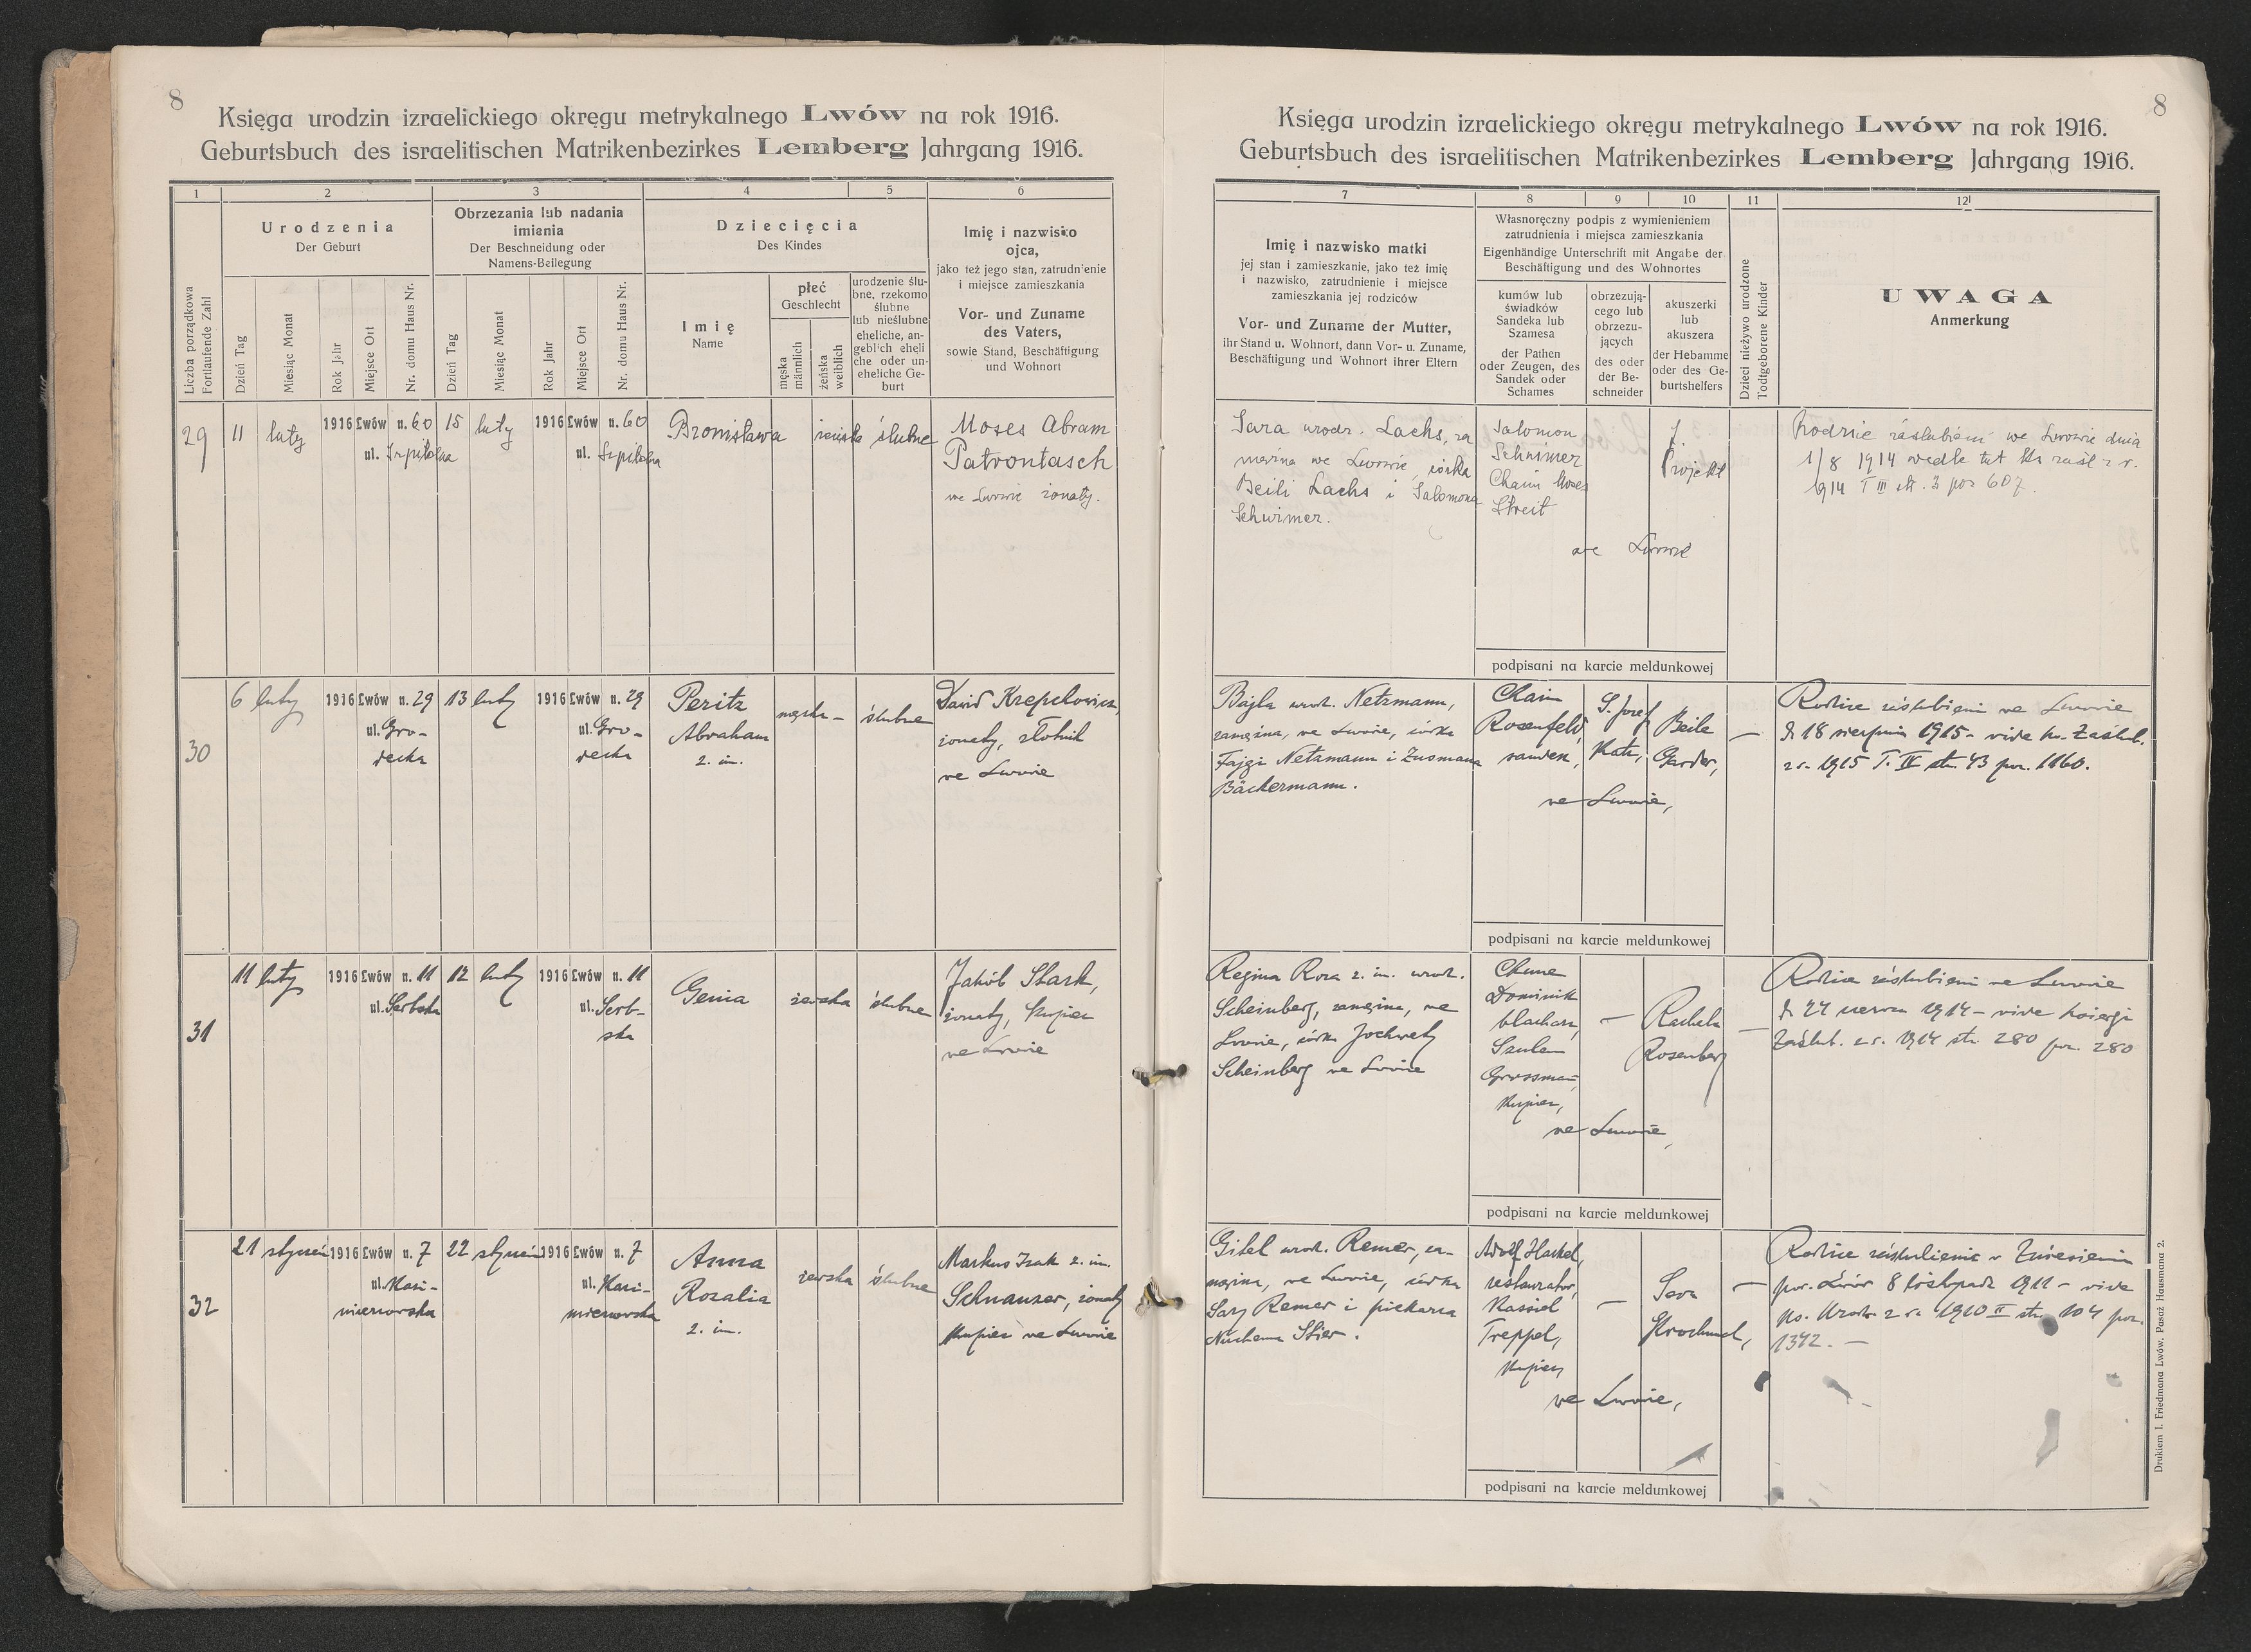 8
Księga urodzin izraelickiego okręgu metrykalnego Lwów na rok 1916.
Geburtsbuch des israelitischen Matrikenbezirkes Lemberg Jahrgang 1916.
1 2 3 4 5 6
Liczba porządkowa
Fortlaufende Zahl
Urodzenia
Der Geburt
Dzień Tag
Miesiąc Monat
Rok Jahr
Miejsce Ort
Nr. domu Haus Nr.
Obrzezania lub nadania
imienia
Der Beschneidung oder
Namens-Beilegung
Dzień Tag
Miesiąc Monat
Rok Jahr
Miejsce Ort
Nr. domu Haus Nr.
Dziecięcia
Des Kindes
Imię
Name
płeć
Geschlecht
męska
männlich
żeńska
weiblich
urodzenie ślu-
bne, rzekomo
ślubne
lub nieślubne
eheliche, an-
geblich eheli
che oder un-
eheliche Ge-
burt
Imię i nazwisko
ojca,
jako też jego stan, zatrudnienie
i miejsce zamieszkania
Vor- und Zuname
des Vaters,
sowie Stand, Beschäftigung
und Wohnort
29 11 luty 1916 Lwów n. 60 15 luty 1916 Lwów n. 60 Bronisława żeńska ślubne Moses Abram
ul. Szpitalna ul. Szpitalna Patrontasch
we Lwowie żonaty.
30 6 luty 1916 Lwów n. 29 13 luty 1916 Lwów n. 29 Peritz męska – ślubne Dawid Krepelowicz,
ul. Gro- ul. Gro- Abraham żonaty, złotnik
decka decka 2. im. we Lwowie
31 11 luty 1916 Lwów n. 11 12 luty 1916 Lwów n. 11 Genia żeńska ślubne Jakób Stark,
ul. Serbska ul. Serb- żonaty, kupiec
ska we Lwowie
32 21 styczeń 1916 Lwów n. 7 22 styczeń 1916 Lwów n. 7 Anna żeńska ślubne Markus Izak 2. im.
ul. Kazi- ul. Kazi- Rozalia Schnauzer, żonaty
mierzowska mierzowska 2. im. kupiec we Lwowie
8
Księga urodzin izraelickiego okręgu metrykalnego Lwów na rok 1916.
Geburtsbuch des israelitischen Matrikenbezirkes Lemberg Jahrgang 1916.
7 8 9 10 11 12
Imię i nazwisko matki
jej stan i zamieszkanie, jako też imię
i nazwisko, zatrudnienie i miejsce
zamieszkania jej rodziców
Vor- und Zuname der Mutter,
ihr Stand u. Wohnort, dann Vor- u. Zuname,
Beschäftigung und Wohnort ihrer Eltern
Własnoręczny podpis z wymienieniem
zatrudnienia i miejsca zamieszkania
Eigenhändige Unterschrift mit Angabe der
Beschäftigung und des Wohnortes
kumów lub
świadków
Sandeka lub
Szamesa
der Pathen
oder Zeugen, des
Sandek oder
Schames
obrzezują-
cego lub
obrzezu-
jących
des oder
der Be-
schneider
akuszerki
lub
akuszera
der Hebamme
oder des Ge-
burtshelfers
Dzieci nieżywo urodzone
Todtgeborene Kinder
UWAGA
Anmerkung
Sara urodz. Lachs, za
mężna we Lwowie, córka
Beili Lachs i Salomona
Schwimer.
Salomon
Schwimer
Chaim Moses
Streit
J.
Projekt
we Lwowie
Rodzice zaślubieni we Lwowie dnia
1/8 1914 wedle tut ks zaśl z r.
1914 T III str. 3 poz 607.
podpisani na karcie meldunkowej
Bajla urodz. Netzmann,
zamężna, we Lwowie, córka
Fajgi Netzmann i Zusmana
Bäckermann.
Chaim
Rosenfeld,
sandek,
S. Josef
Katz,
Beile
Garder,
—
we Lwowie,
Rodzice zaślubieni we Lwowie
d. 18 sierpnia 1915 – vide ks. Zaślub.
z r. 1915 T. IV str. 43 poz. 1160.
podpisani na karcie meldunkowej
Regina Roza 2. im. urodz.
Scheinberg, zamężna, we
Lwowie, córka Jochwety
Scheinberg we Lwowie
Chune
Dominik
blacharz,
Szulem
Grossman,
kupiec,
—
Rachela
Rosenberg
—
we Lwowie,
Rodzice zaślubieni we Lwowie
d. 24 czerwca 1914 – vide księgi
Zaślub. z r. 1914 str. 280 poz. 280
podpisani na karcie meldunkowej
Gitel urodz. Remer, za-
mężna, we Lwowie, córka
Sary Remer i piekarza
Nuchema Stier.
Adolf Haskel,
restaurator,
Kassiel
Treppel,
kupiec,
—
Sara
Krochmal,
—
we Lwowie,
Rodzice zaślubieni w Zniesieniu
pow. Lwów 8 listopada 1911 – vide
ks. Urodz. z r. 1910 II str. 104 poz.
1342. —
podpisani na karcie meldunkowej
Drukiem I. Friedmana Lwów, Pasaż Hausmana 2.